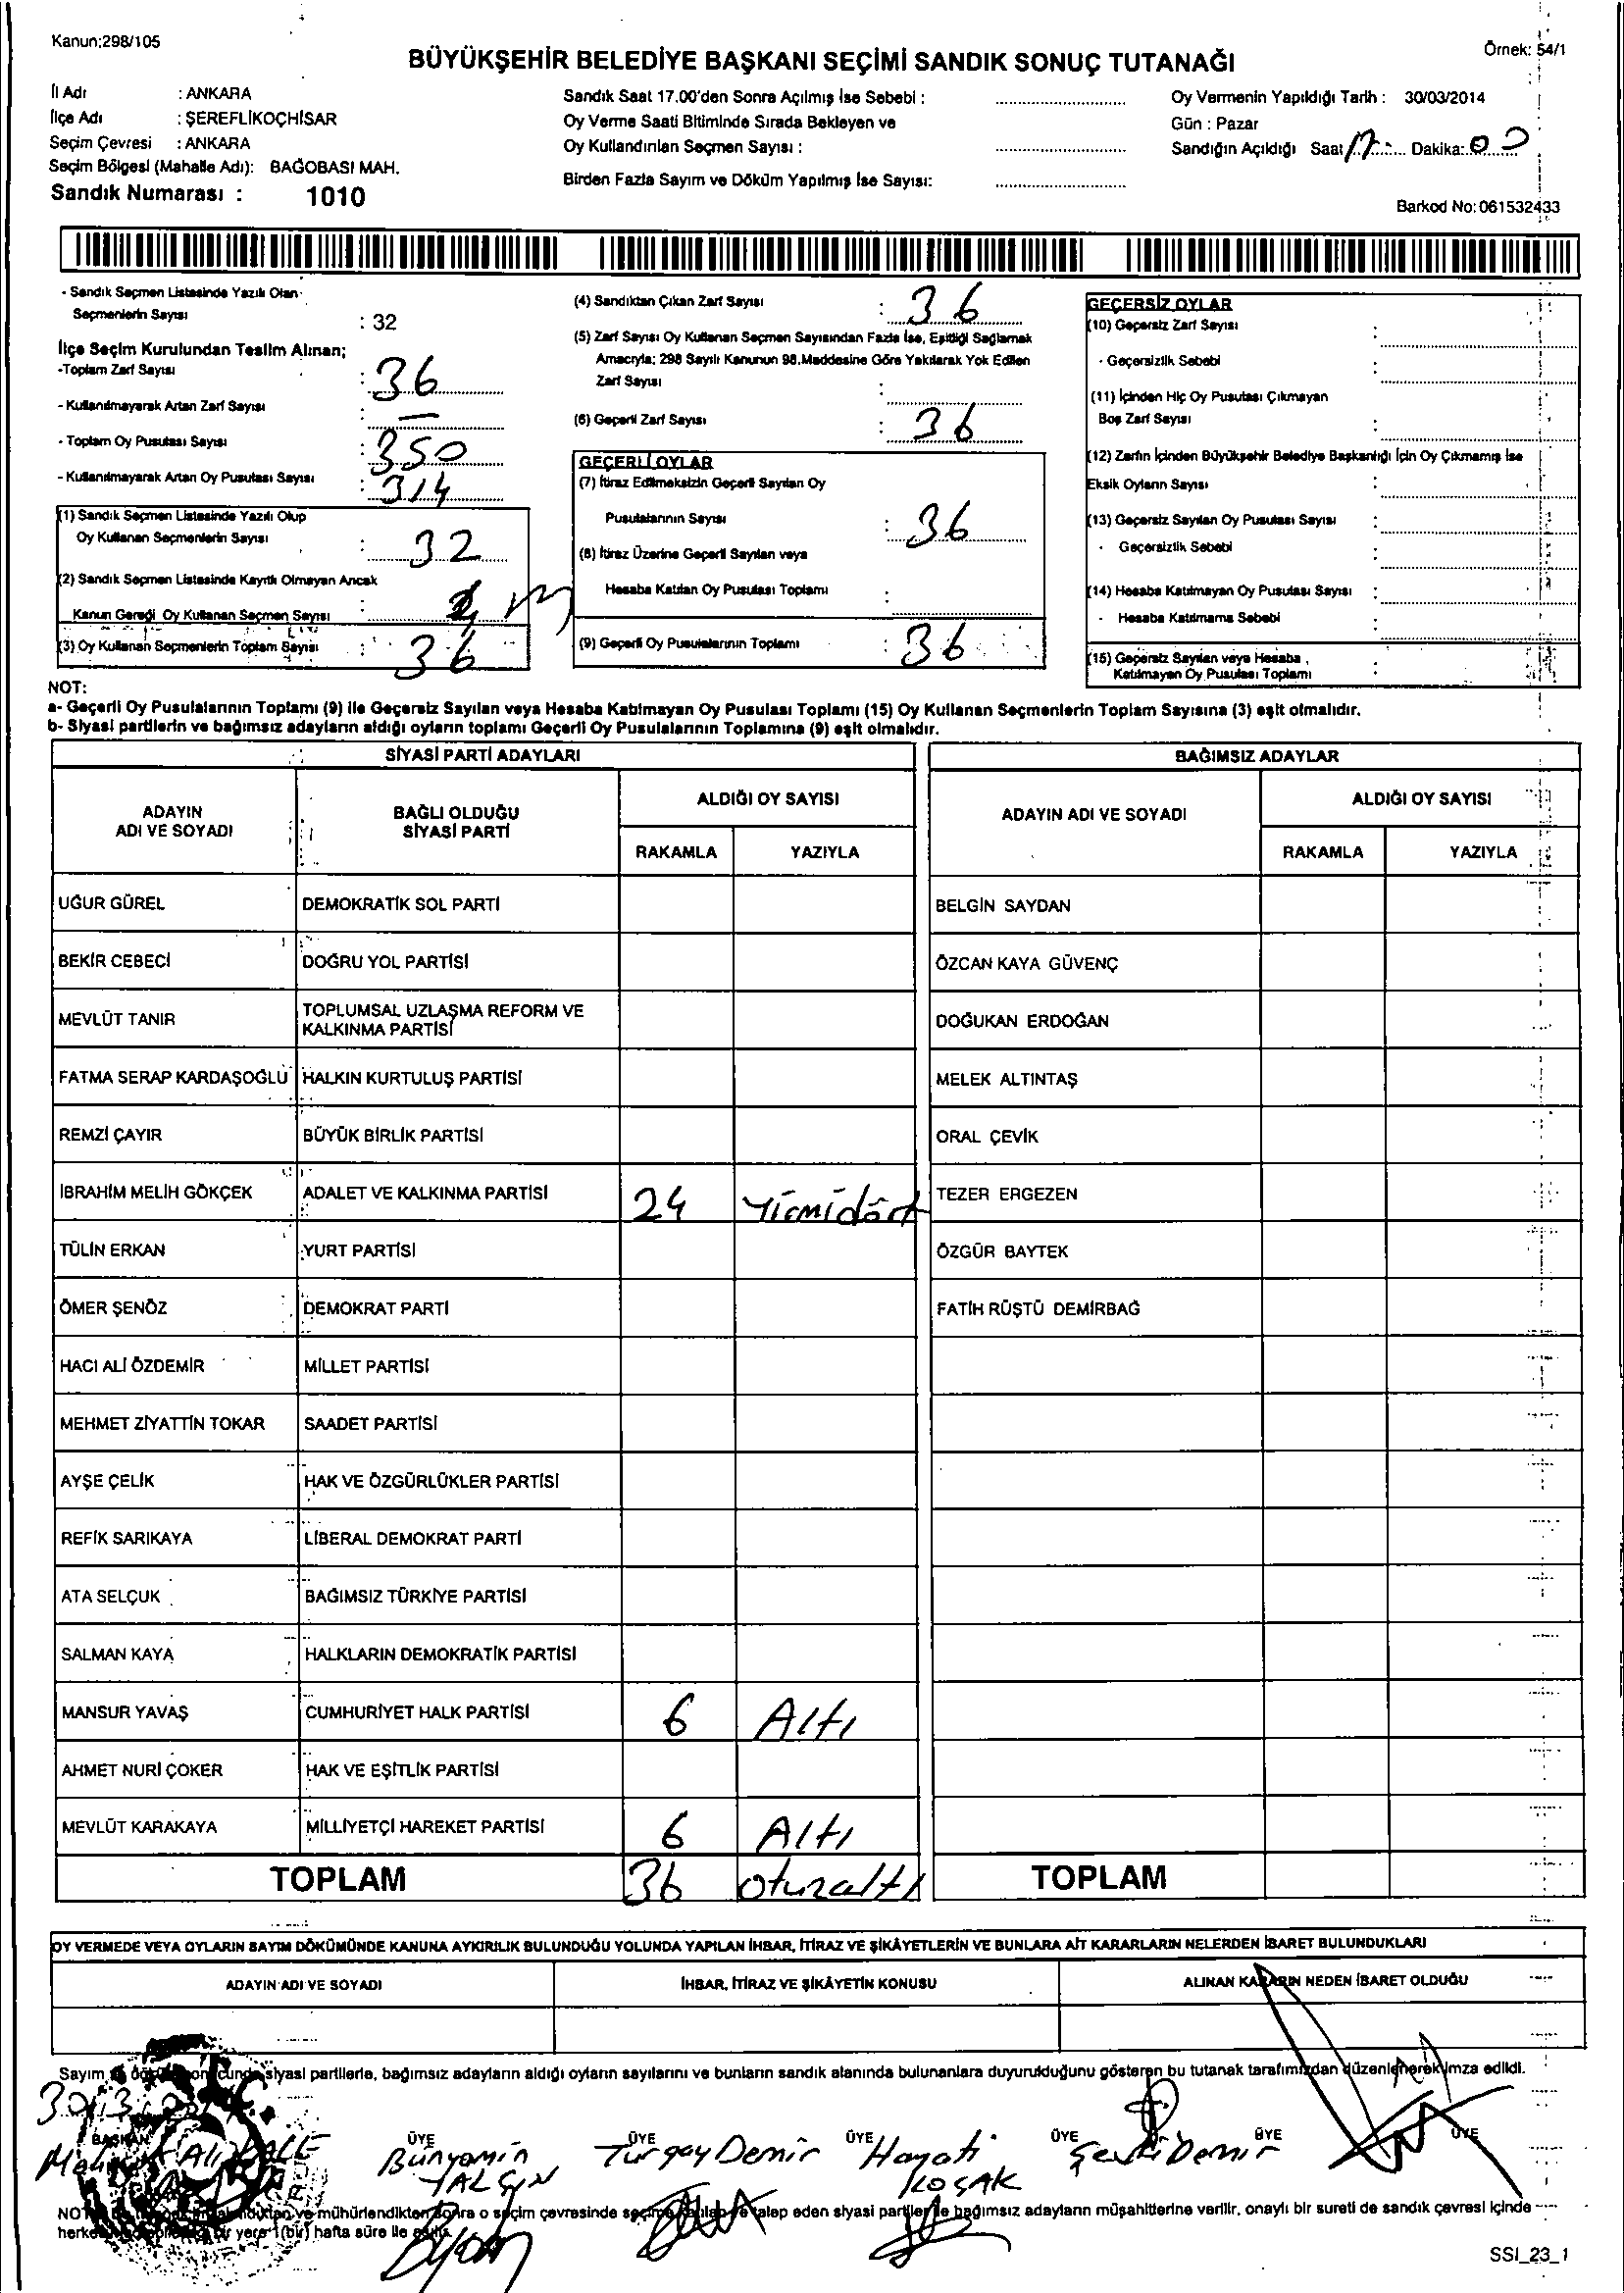 Kanun;298/105
Örnek: 54/1
BÜYÜKŞEHİR BELEDİYE BAŞKANI SEÇİMİ SANDIK SONUÇ TUTANAĞI
İl Adı : ANKARA
İlçe Adı : ŞEREFLİKOÇHİSAR
Seçim Çevresi : ANKARA
Seçim Bölgesi (Mahalle Adı): BAĞOBASI MAH.
Sandık Numarası : 1010
Sandık Saat 17.00'den Sonra Açılmış İse Sebebi :
Oy Verme Saati Bitiminde Sırada Bekleyen ve
Oy Kullandırılan Seçmen Sayısı :
Birden Fazla Sayım ve Döküm Yapılmış İse Sayısı:
Oy Vermenin Yapıldığı Tarih : 30/03/2014
Gün : Pazar
Sandığın Açıldığı Saat 17 Dakika: 00
Barkod No: 061532433
- Sandık Seçmen Listesinde Yazılı Olan
Seçmenlerin Sayısı : 32
İlçe Seçim Kurulundan Teslim Alınan;
-Toplam Zarf Sayısı : 36
- Kullanılmayarak Artan Zarf Sayısı : —
- Toplam Oy Pusulası Sayısı : 350
- Kullanılmayarak Artan Oy Pusulası Sayısı : 314
(1) Sandık Seçmen Listesinde Yazılı Olup
Oy Kullanan Seçmenlerin Sayısı : 32
(2) Sandık Seçmen Listesinde Kayıtlı Olmayan Ancak
Kanun Gereği Oy Kullanan Seçmen Sayısı :
(3) Oy Kullanan Seçmenlerin Toplam Sayısı : 36
(4) Sandıktan Çıkan Zarf Sayısı : 36
(5) Zarf Sayısı Oy Kullanan Seçmen Sayısından Fazla İse, Eşitliği Sağlamak
Amacıyla; 298 Sayılı Kanunun 98.Maddesine Göre Yakılarak Yok Edilen
Zarf Sayısı :
(6) Geçerli Zarf Sayısı : 36
GEÇERLİ OYLAR
(7) İtiraz Edilmeksizin Geçerli Sayılan Oy
Pusulalarının Sayısı : 36
(8) İtiraz Üzerine Geçerli Sayılan veya
Hesaba Katılan Oy Pusulası Toplamı :
(9) Geçerli Oy Pusulalarının Toplamı : 36
GEÇERSİZ OYLAR
(10) Geçersiz Zarf Sayısı :
- Geçersizlik Sebebi :
(11) İçinden Hiç Oy Pusulası Çıkmayan
Boş Zarf Sayısı :
(12) Zarfın İçinden Büyükşehir Belediye Başkanlığı İçin Oy Çıkmamış İse
Eksik Oyların Sayısı :
(13) Geçersiz Sayılan Oy Pusulası Sayısı :
- Geçersizlik Sebebi :
(14) Hesaba Katılmayan Oy Pusulası Sayısı :
- Hesaba Katılmama Sebebi :
(15) Geçersiz Sayılan veya Hesaba
Katılmayan Oy Pusulası Toplamı :
NOT:
a- Geçerli Oy Pusulalarının Toplamı (9) ile Geçersiz Sayılan veya Hesaba Katılmayan Oy Pusulası Toplamı (15) Oy Kullanan Seçmenlerin Toplam Sayısına (3) eşit olmalıdır.
b- Siyasi partilerin ve bağımsız adayların aldığı oyların toplamı Geçerli Oy Pusulalarının Toplamına (9) eşit olmalıdır.
SİYASİ PARTİ ADAYLARI
BAĞIMSIZ ADAYLAR
ADAYIN ADI VE SOYADI
BAĞLI OLDUĞU SİYASİ PARTİ
ALDIĞI OY SAYISI
RAKAMLA YAZIYLA
ADAYIN ADI VE SOYADI
ALDIĞI OY SAYISI
RAKAMLA YAZIYLA
UĞUR GÜREL DEMOKRATİK SOL PARTİ BELGİN SAYDAN
BEKİR CEBECİ DOĞRU YOL PARTİSİ ÖZCAN KAYA GÜVENÇ
MEVLÜT TANIR TOPLUMSAL UZLAŞMA REFORM VE KALKINMA PARTİSİ DOĞUKAN ERDOĞAN
FATMA SERAP KARDAŞOĞLU HALKIN KURTULUŞ PARTİSİ MELEK ALTINTAŞ
REMZİ ÇAYIR BÜYÜK BİRLİK PARTİSİ ORAL ÇEVİK
İBRAHİM MELİH GÖKÇEK ADALET VE KALKINMA PARTİSİ 24 Yirmidört TEZER ERGEZEN
TÜLİN ERKAN YURT PARTİSİ ÖZGÜR BAYTEK
ÖMER ŞENÖZ DEMOKRAT PARTİ FATİH RÜŞTÜ DEMİRBAĞ
HACI ALİ ÖZDEMİR MİLLET PARTİSİ
MEHMET ZİYATTİN TOKAR SAADET PARTİSİ
AYŞE ÇELİK HAK VE ÖZGÜRLÜKLER PARTİSİ
REFİK SARIKAYA LİBERAL DEMOKRAT PARTİ
ATA SELÇUK BAĞIMSIZ TÜRKİYE PARTİSİ
SALMAN KAYA HALKLARIN DEMOKRATİK PARTİSİ
MANSUR YAVAŞ CUMHURİYET HALK PARTİSİ 6 Altı
AHMET NURİ ÇOKER HAK VE EŞİTLİK PARTİSİ
MEVLÜT KARAKAYA MİLLİYETÇİ HAREKET PARTİSİ 6 Altı
TOPLAM 36 otuzaltı TOPLAM
OY VERMEDE VEYA OYLARIN SAYIM DÖKÜMÜNDE KANUNA AYKIRILIK BULUNDUĞU YOLUNDA YAPILAN İHBAR, İTİRAZ VE ŞİKÂYETLERİN VE BUNLARA AİT KARARLARIN NELERDEN İBARET BULUNDUKLARI
ADAYIN ADI VE SOYADI İHBAR, İTİRAZ VE ŞİKÂYETİN KONUSU ALINAN KARARIN NEDEN İBARET OLDUĞU
Sayım siyasi partilerle, bağımsız adayların aldığı oyların sayılarını ve bunların sandık alanında bulunanlara duyurulduğunu gösteren bu tutanak tarafımızdan düzenlenerek imza edildi.
BAŞKAN ÜYE ÜYE ÜYE ÜYE ÜYE ÜYE
Bünyamin YALÇIN Turgay Demir Hayati KOŞAK Şevki Demir
NOT: ve mühürlendikten sonra o seçim çevresinde talep eden siyasi partiler ile bağımsız adayların müşahitlerine verilir, onaylı bir sureti de sandık çevresi içinde
bir yere 1 (bir) hafta süre ile asılır.
SSI_23_1